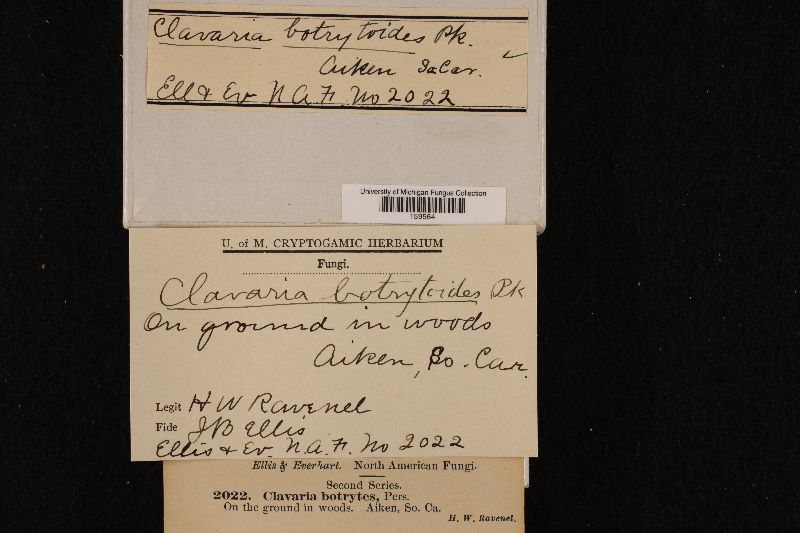 Clavaria botrytoides Pk.
Aiken So Car.
Ell & Ev N.A.F. No 2022
University of Michigan Fungus Collection
159564
U. of M. CRYPTOGAMIC HERBARIUM
Fungi.
Clavaria botrytoides Pk
On ground in woods
Aiken, So. Car.
Legit H W Ravenel
Fide J B Ellis
Ellis & Ev. N.A.F. No 2022
Ellis & Everhart. North American Fungi.
Second Series.
2022. Clavaria botrytes, Pers.
On the ground in woods. Aiken, So. Ca.
H. W. Ravenel.